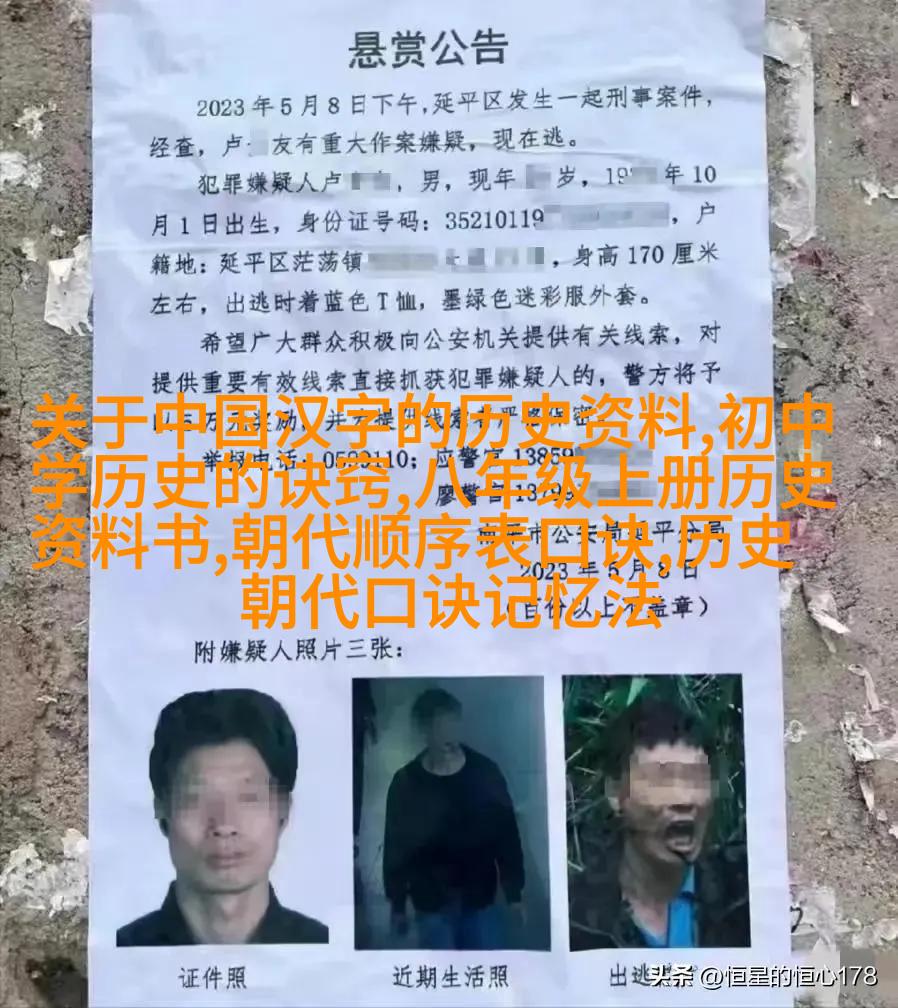 悬赏公告
2023年5月8日下午,延平区发生一起刑事案件,
经查,卢 友有重大作案嫌疑,现在逃。
犯罪嫌疑人卢 ,男,现年 岁,19 年10
月1日出生,身份证号码:35210119 ,户
籍地:延平区茫荡镇 ,身高170厘米
左右,出逃时着蓝色T恤,墨绿色迷彩服外套。
希望广大群众积极向公安机关提供有关线索,对
提供重要有效线索直接抓获犯罪嫌疑人的,警方将予
关于中国汉字的历史资料,初中
学历史的诀窍,八年级上册历史
资料书,朝代顺序表口诀,历史
朝代口诀记忆法
举报电话: 110;应警官13859
廖警官13799
市公安局延平分局
2023年5月8日
(百份以上不盖章)
附嫌疑人照片三张:
证件照
近期生活照
出逃
头条 @恒星的恒心178